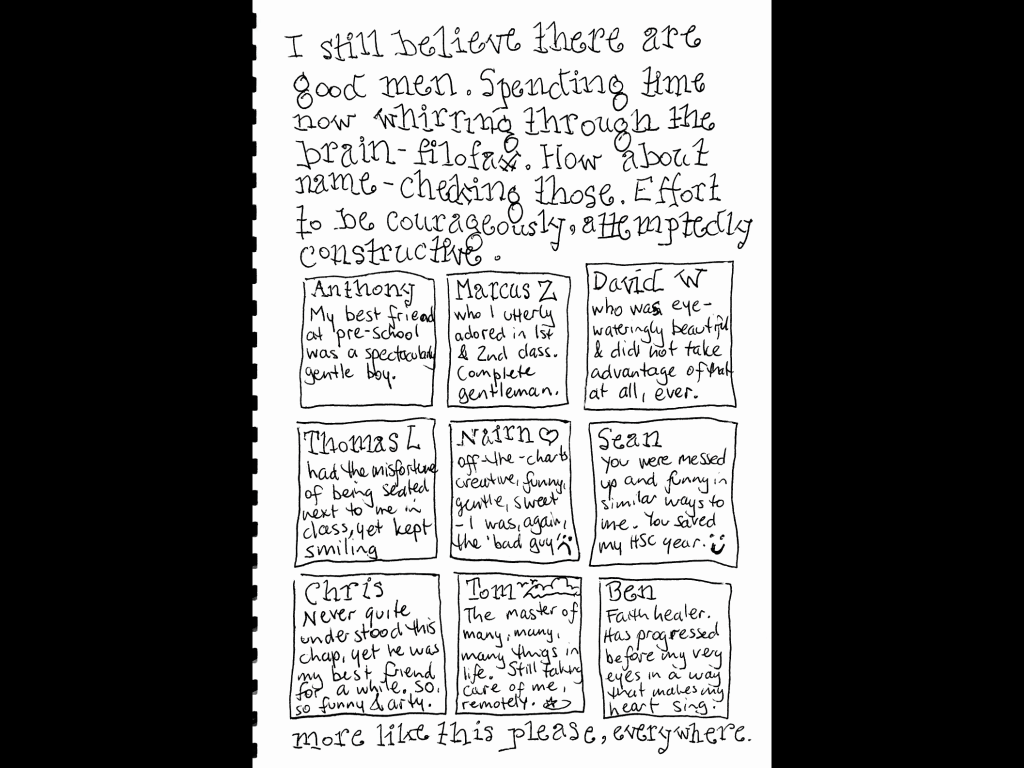 I still believe there are
good men. Spending time
now whirring through the
brain-filofax. How about
name-checking those. Effort
to be courageously, attemptedly
constructive.
Anthony
My best friend
at pre-school
was a spectacularly
gentle boy.
Marcus Z
who I utterly
adored in 1st
& 2nd class.
Complete
gentleman.
David W
who was eye-
wateringly beautiful
& did not take
advantage of that
at all, ever.
Thomas L
had the misfortune
of being seated
next to me in
class, yet kept
smiling
Nairn ♡
off-the-charts
creative, funny,
gentle, sweet
- I was, again,
the 'bad guy'
Sean
You were messed
up and funny in
similar ways to
me. You saved
my HSC year.
Chris
Never quite
understood this
chap, yet he was
my best friend
for a while. So,
so funny & arty.
Tom
The master of
many, many,
many things in
life. Still taking
care of me,
remotely.
Ben
Faith healer.
Has progressed
before my very
eyes in a way
that makes my
heart sing.
more like this please, everywhere.